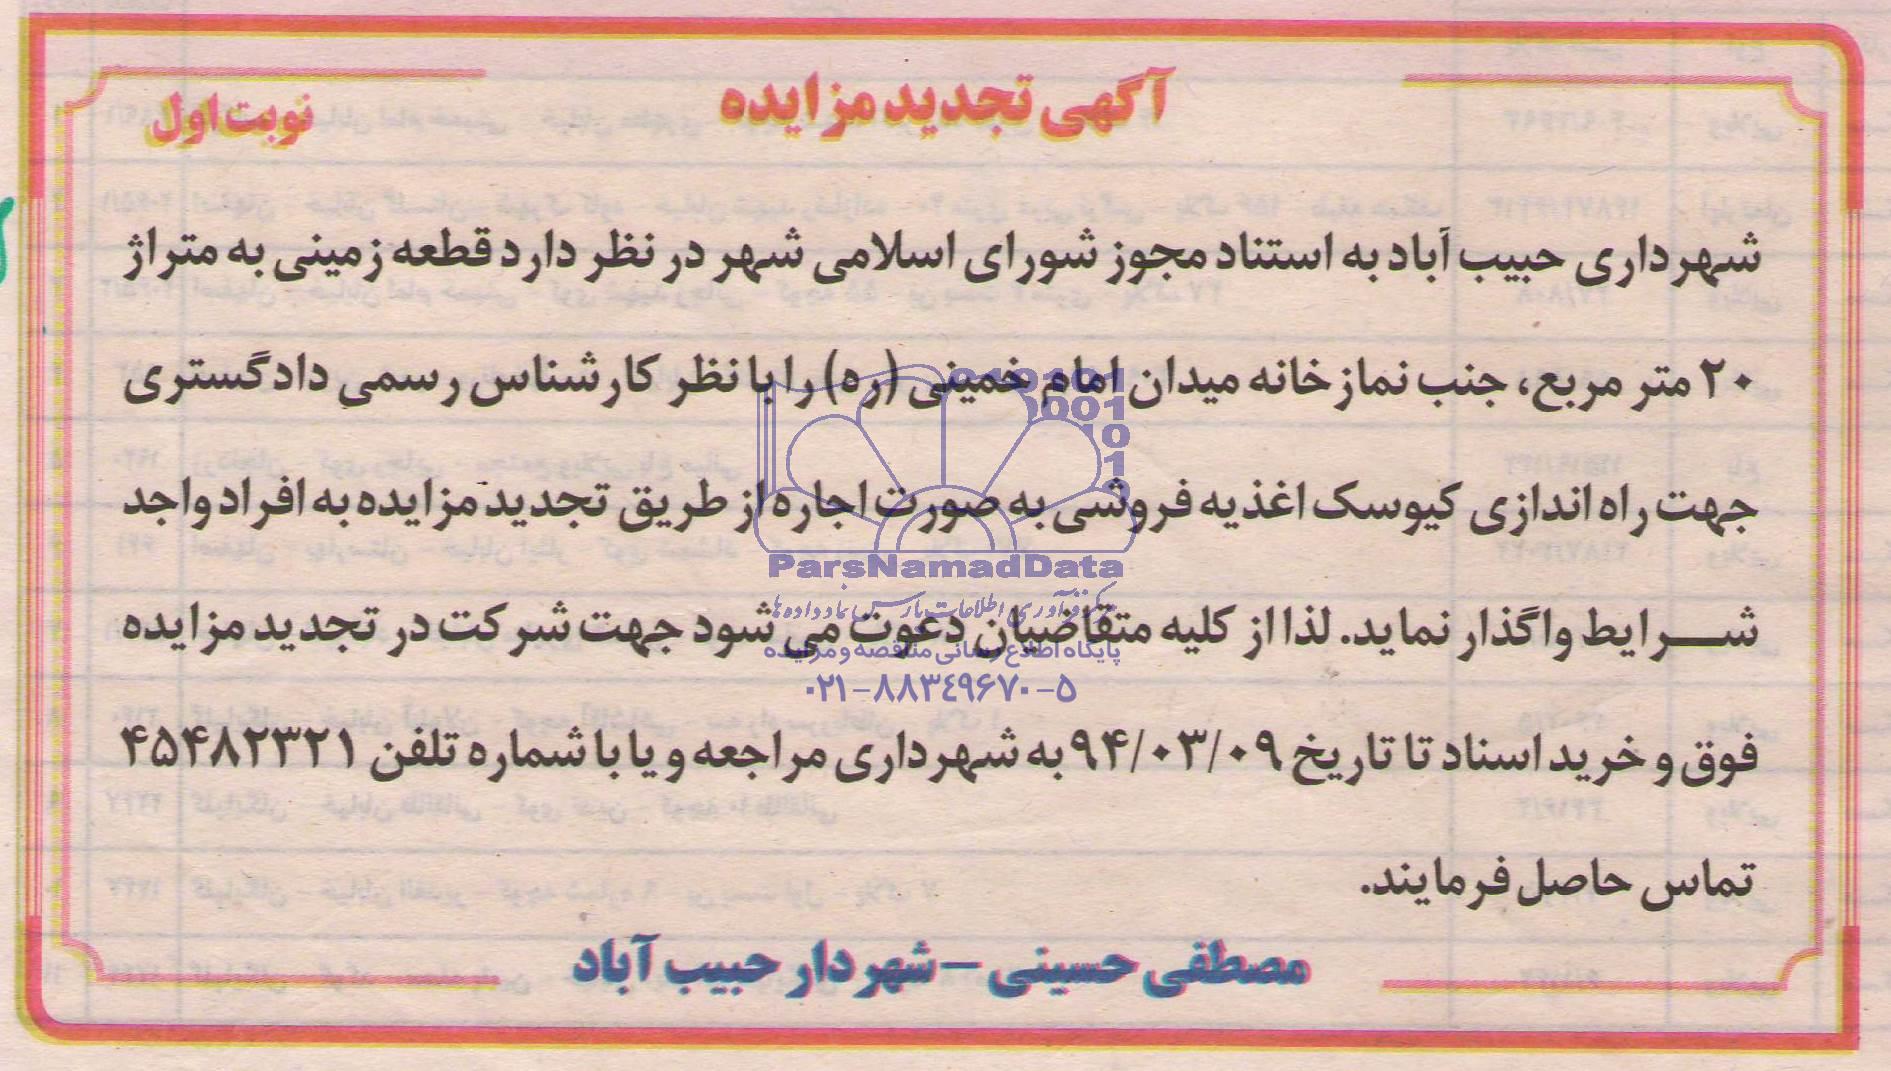 آگهی تجدید مزایده
نوبت اول
شهرداری حبیب آباد به استناد مجوز شورای اسلامی شهر در نظر دارد قطعه زمینی به متراژ
۲۰ متر مربع، جنب نمازخانه میدان امام خمینی (ره) را با نظر کارشناس رسمی دادگستری
جهت راه اندازی کیوسک اغذیه فروشی به صورت اجاره از طریق تجدید مزایده به افراد واجد
شرایط واگذار نماید. لذا از کلیه متقاضیان دعوت می شود جهت شرکت در تجدید مزایده
فوق و خرید اسناد تا تاریخ ۹۴/۰۳/۰۹ به شهرداری مراجعه و یا با شماره تلفن ۴۵۴۸۲۳۲۱
تماس حاصل فرمایند.
مصطفی حسینی - شهردار حبیب آباد
ParsNamadData
مرکز فرآوری اطلاعات پارس نماد داده ها
پایگاه اطلاع رسانی مناقصه و مزایده
۰۲۱-۸۸۳۴۹۶۷۰-۵